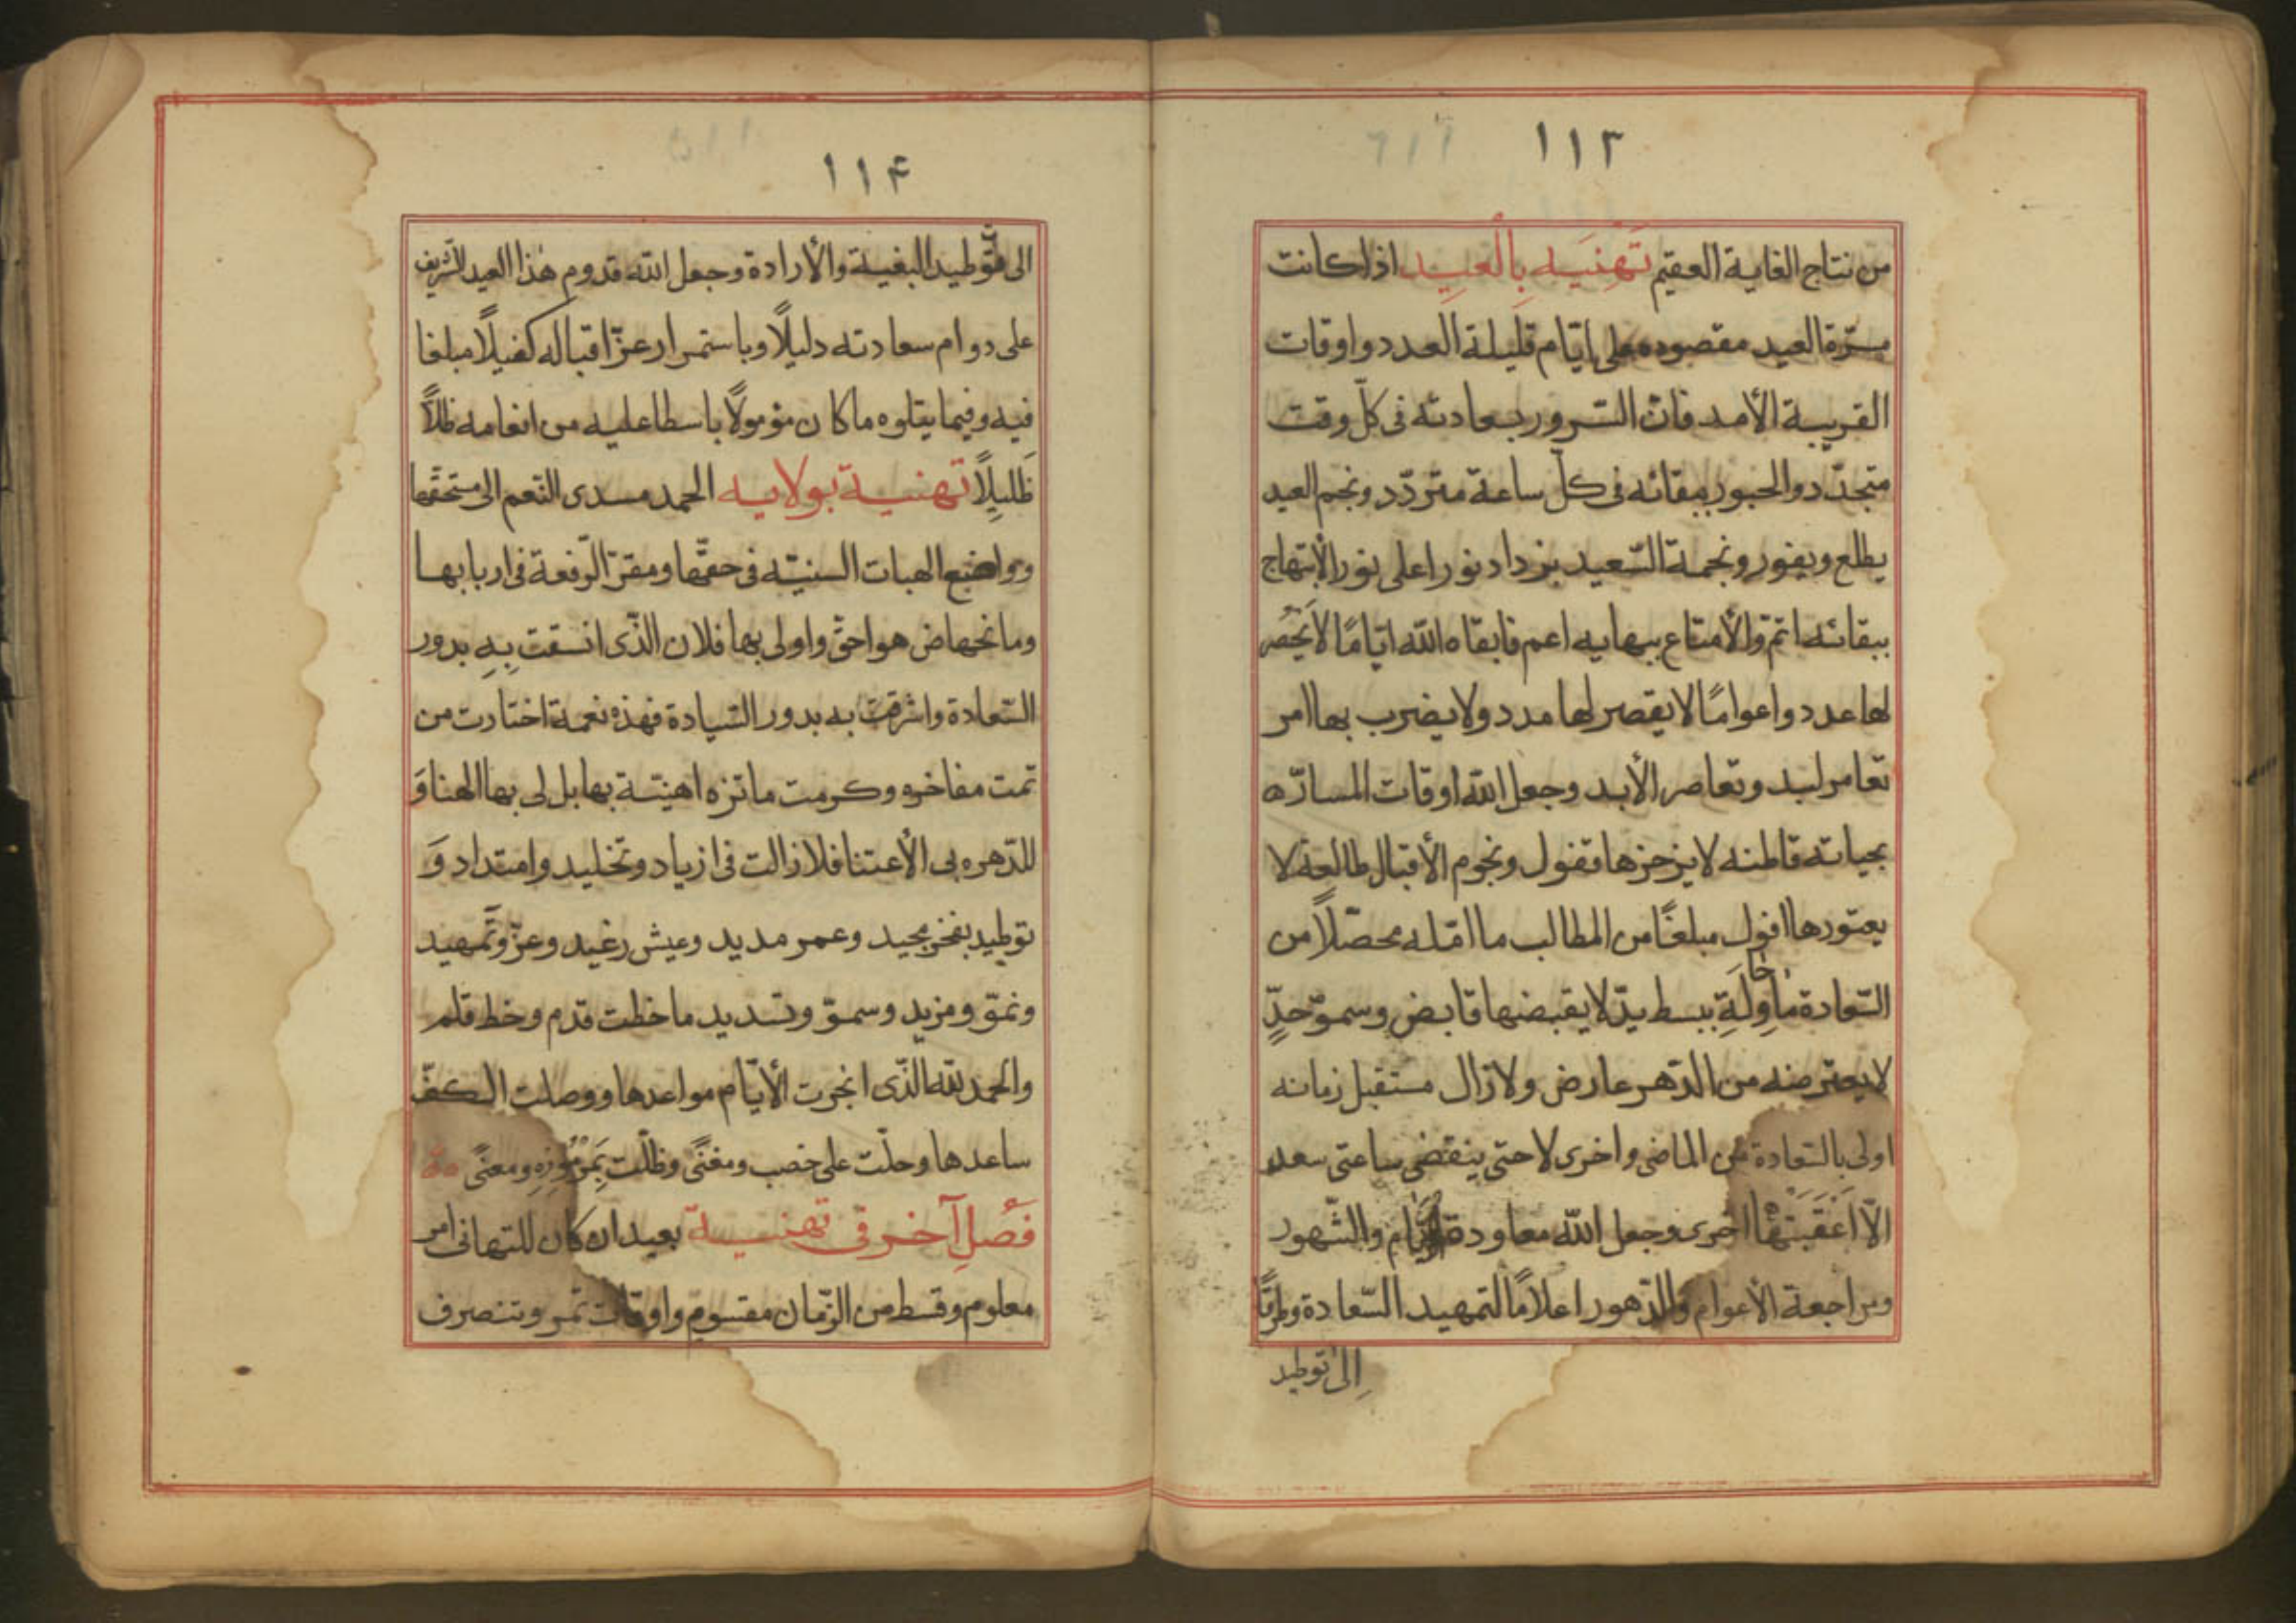 ١١٣
من نتاج الغاية العقيم تَهْنِيَه بِالْعِيد اذا كانت
مسرّة العيد مقصوده على ايّام قليلة العدد واوقات
القريبة الأمد فانّ السّرور بسعادته فى كلّ وقت
متجدّد والحبور ببقائه فى كلّ ساعة متردّد ونجم العيد
يطلع ويغور ونجمة السّعيد يزداد نورا على نور الأبتهاج
ببقائه اتمّ والأمتاع ببهايه اعم فابقاه الله ايّامًا لا يَحْصُر
لها عدد واعوامًا لا يقصر لها مدد ولا يضرب بها امر
تعامر لبد وتعاصر الأبد وجعل الله اوقات المسارّه
بحياته قاطنه لا يزحزها قفول ونجوم الأقبال طالعة لا
يعتورها افول مبلغًا من المطالب ما امّله محصّلًا من
السّعادة ما حاوله ببسط يدّ لا يقبضها قابض وسموّ حدٍّ
لا يعترضه من الدّهر عارض ولا زال مستقبل زمانه
اولى بالسّعادة من الماضى واخرى لا حتى ينقضى ساعتى سعد
الّا اَعْقَبَتْهَا اخرى وجعل الله معاودة الايّام والشّهور
ومراجعة الأعوام والدّهور اعلامًا لتمهيد السّعادة وطرقًا
الى توطيد
١١۴
الى توطيد البغية والأرادة وجعل الله قدوم هذا العيد الشّريف
على دوام سعادته دليلًا وباستمرار عزّ اقباله كفيلًا مبلغا
فيه وفيما يتلوه ما كان مؤمولًا باسطا عليه من انعامه ظلًّا
ظَلِيلًا تهنية بولايه الحمد مسدى النّعم الى مستحقّها
وواضع الهبات السنيّه فى حقّها ومقرّ الرّفعة فى اربابها
ومانحها من هو احقّ واولى بها فلان الذّى انسقت بِهِ بدور
السّعادة واشرقت به بدور السّيادة فهذه نعمة اختارت من
تمت مفاخره وكرمت ماتزه اهنيّة بها بل لى بها الهنا وَ
للدّهره بى الأعتنا فلا زالت فى ازياد وتخليد وامتداد وَ
توطيد بفخر مجيد وعمر مديد وعيش رغيد وعزّ وتَمهيد
ونموّ ومزيد وسموّ وتسديد ما خطت قدم وخط قلم
والحمد لله الذّى انجرت الأيّام مواعدها ووصلت الكفّ
ساعدها وحلّت على خصب ومغنًى وظلّت ومعنًى
فَصْلِ آخر فى تهنيـة بعيد ان كان للتهانى امر
معلوم وقسط من الزّمان مقسوم واوقات تمر وتنصرف